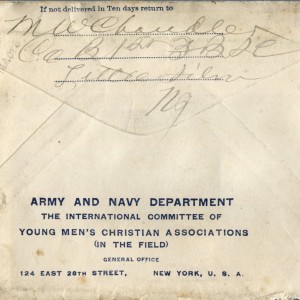 If not delivered in Ten days return to
Co B 1st
Little Silver
NJ
ARMY AND NAVY DEPARTMENT
THE INTERNATIONAL COMMITTEE OF
YOUNG MEN'S CHRISTIAN ASSOCIATIONS
(IN THE FIELD)
GENERAL OFFICE
124 EAST 28TH STREET, NEW YORK, U. S. A.